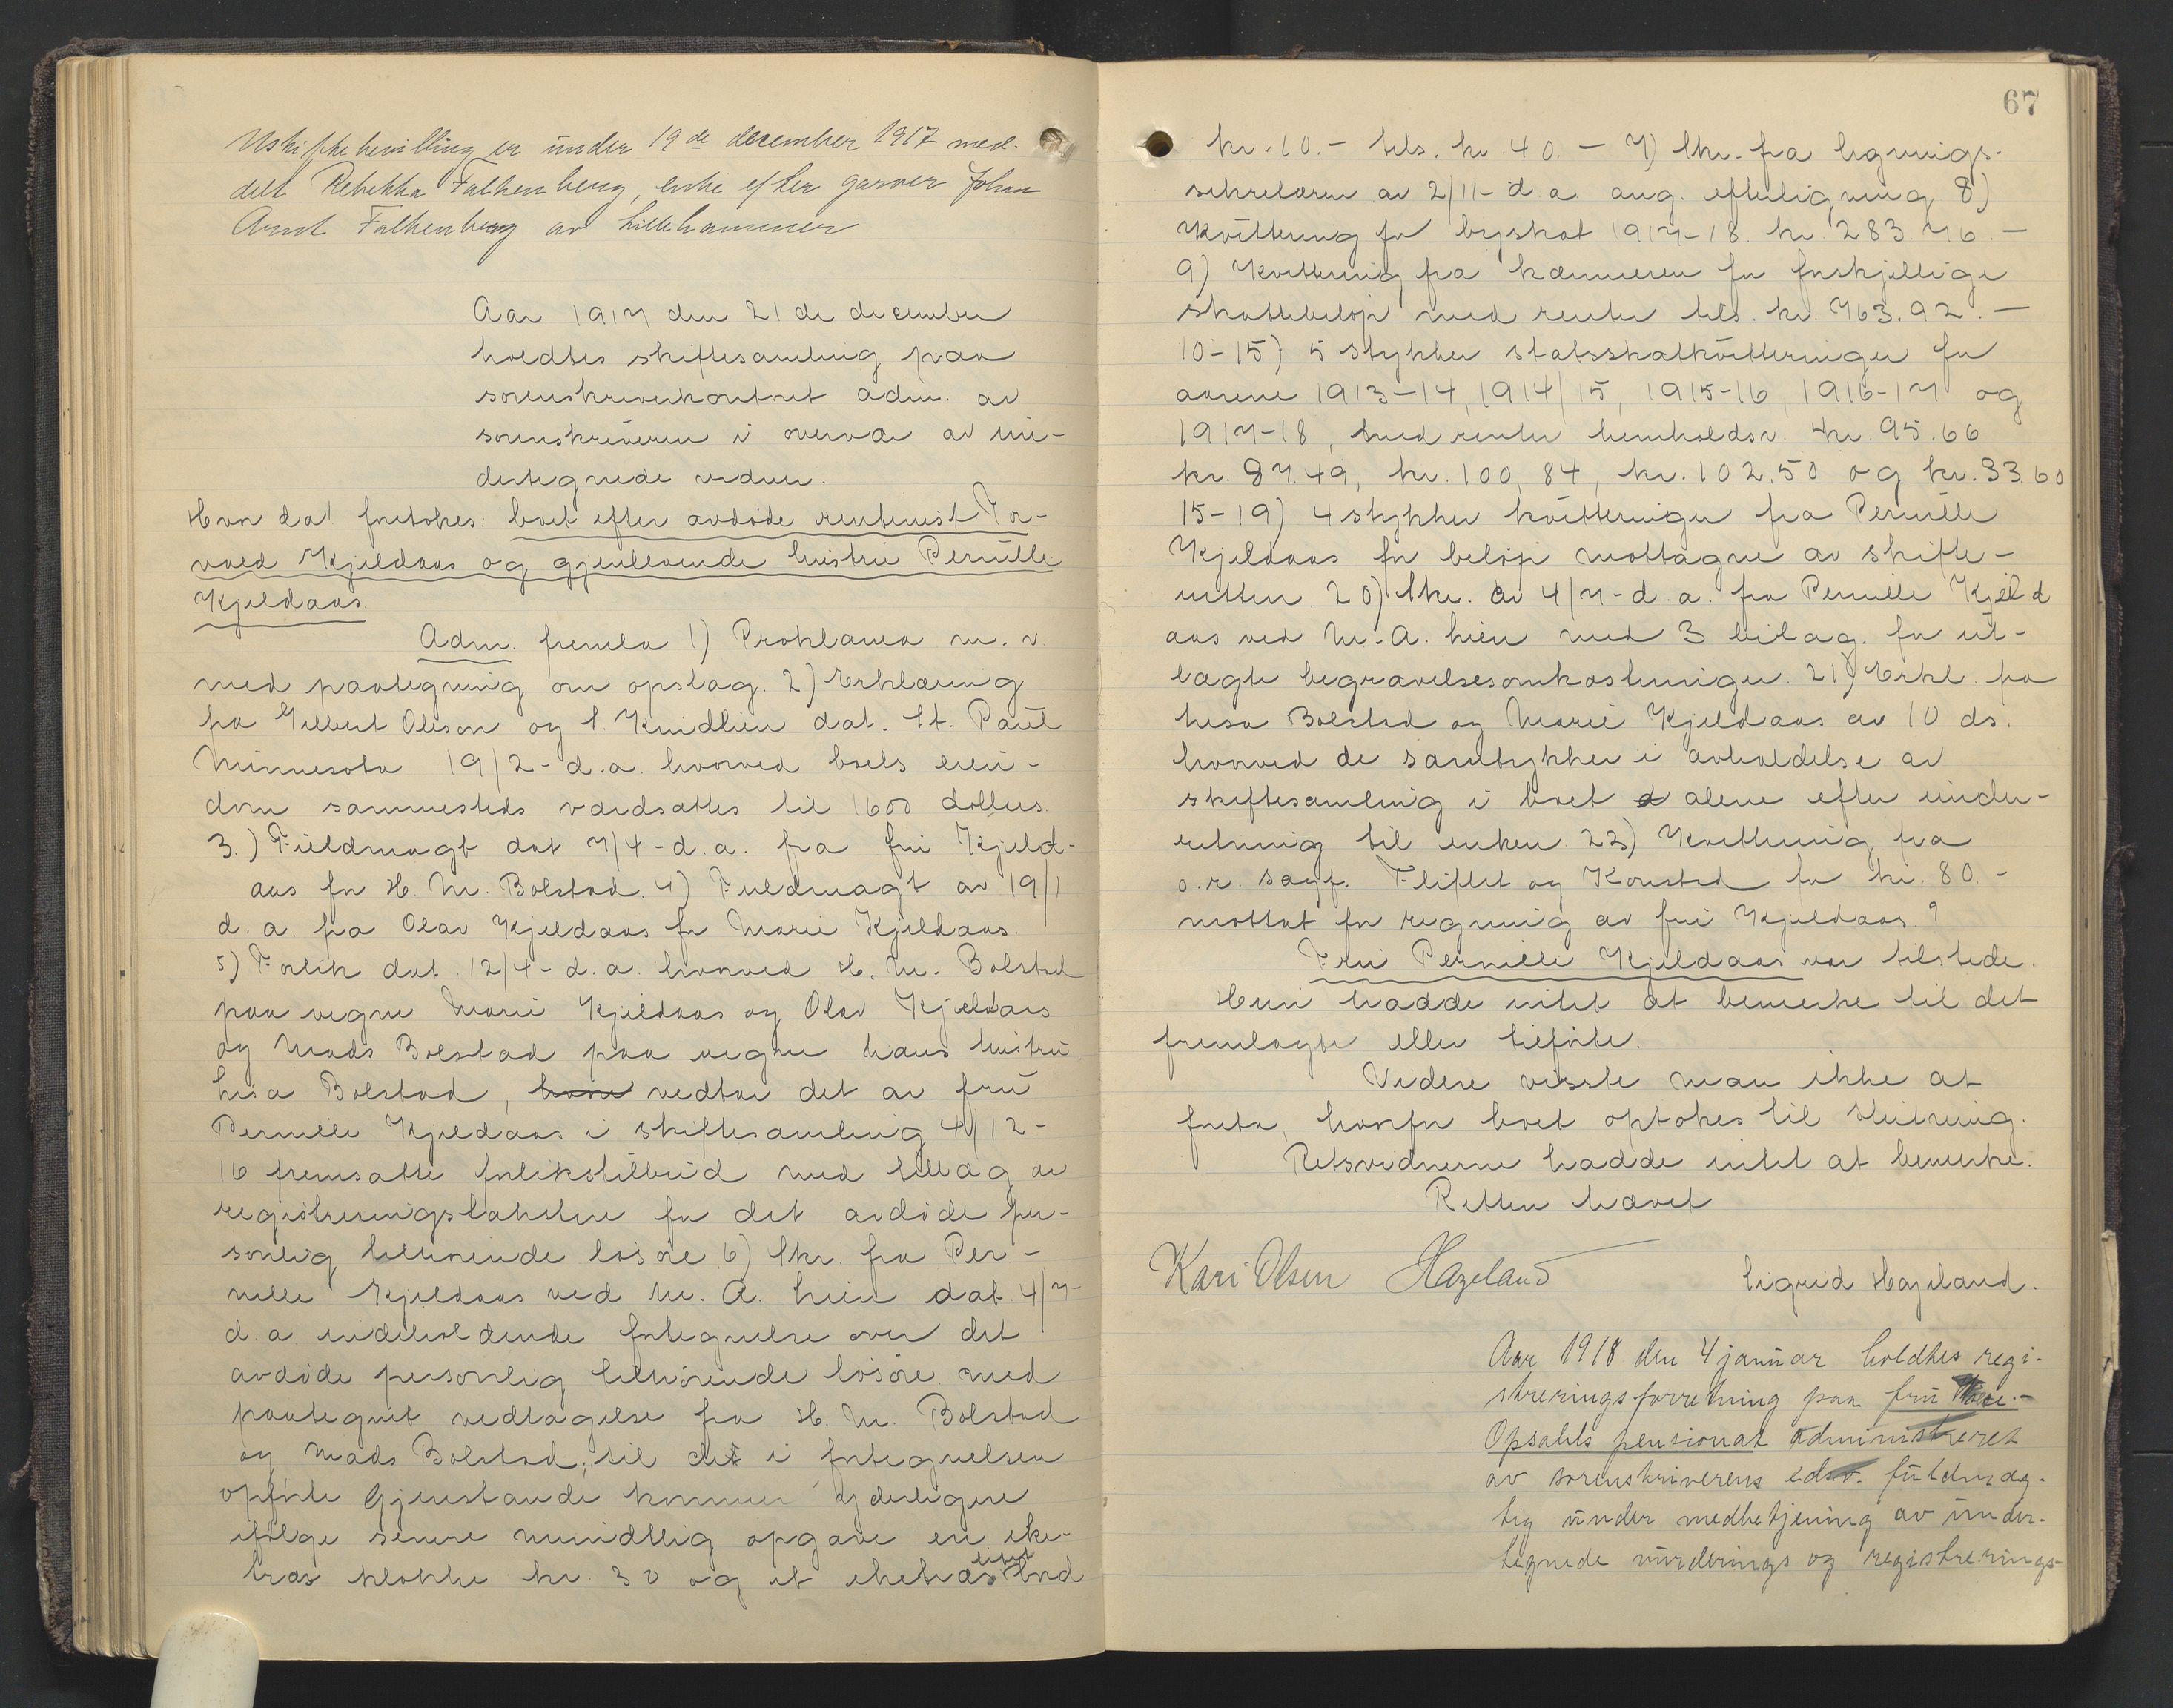 Uskiftebevilling er under 19de december 1917 med-
delt Rebekka Falkenberg, enke efter garver Johan
Arnt Falkenberg av Lillehammer
Aar 1917 den 21de december
holdtes skiftesamling paa
sorenskriverkontoret adm. av
sorenskriveren i overvær av un-
dertegnede vidner.
Hvor da! foretokes: boet efter avdøde rentenist Tor-
vald Kjeldaas og gjenlevende hustru Pernille
Kjeldaas.
Adm. fremla 1) Proklama m. v.
med paategning om opslag. 2) Erklæring
fra Gilbert Oleson og S. Knudlien dat. St. Paul
Minnesota 19/2- d.a. hvorved boets eien-
dom sammesteds værdsattes til 1600 dollars.
3.) Fuldmagt dat 7/4- d.a. fra fru Kjeld-
aas for H. M. Bolstad. 4) Fuldmagt av 19/1
d.a. fra Olav Kjeldaas for Marie Kjeldaas.
5) Forlik dat. 12/4- d.a. hvorved H. M. Bolstad
paa vegne Marie Kjeldaas og Olav Kjeldaas
og Mads Bolstad paa vegne hans hustru
Lisa Bolstad, vedtar det av fru
Pernille Kjeldaas i skiftesamling 4/12-
16 fremsatte forlikstilbud med tillæg av
registreringstakstene for det avdøde per-
sonlig tilhørende løsøre 6) Skr. fra Per-
nille Kjeldaas ved M. A. Lien dat. 4/7-
d.a. indeholdende fortegnelse over det
avdøde personlig tilhørende løsøre med
paategnet vedtagelse fra H. M. Bolstad
og Mads Bolstad; til de i fortegnelsen
opførte gjenstande kommer yderligere
ifølge senere mundtlig opgave en eke-
træs klokke kr. 30 og et eketræs litet bord
67
kr. 10.- tils. kr. 40.- 7) Skr. fra lignings-
sekretæren av 2/11- d.a. ang. efterligning 8)
Kvittering for byskat 1917-18. kr. 283.76.-
9) Kvittering fra kæmneren for forskjellige
skattebeløp med renter tils. kr. 763.92.-
10-15) 5 stykker statsskatkvitteringer for
aarene 1913-14, 1914/15, 1915-16, 1916-17 og
1917-18, med renter henholdsv. kr. 95.66
kr. 97.49, kr. 100,84, kr. 102.50 og kr. 33.60
15-19) 4 stykker kvitteringer fra Pernille
Kjeldaas for beløp mottagne av skifte-
retten. 20) Skr. av 4/7- d.a. fra Pernille Kjeld
aas ved M. A. Lien med 3 bilag. for ut-
lagte begravelsesomkostninger. 21) Erkl. fra
Lisa Bolstad og Marie Kjeldaas av 10 ds.
hvorved de samtykker i avholdelse av
skiftesamling i boet alene efter under-
retning til enken. 22) Kvittering fra
o.r. sagf. Fliflet og Konstad for kr. 80.-
mottat for regning av fru Kjeldaas.
Fru Pernille Kjeldaas var tilstede.
Hun hadde intet at bemerke til det
fremlagte eller tilførte.
Videre visste man ikke at
foreta, hvorfor boet optokes til slutning.
Retsvidnerne hadde intet at bemerke.
Retten hævet
Kari Olsen Hazeland Sigrid Hazeland.
Aar 1918 den 4 januar holdtes regi-
streringsforretning paa fru
Opsahls pensionat administreret
av sorenskriverens edsv. fuldmæg-
tig under medbetjening av under-
tegnede vurderings og registrerings-